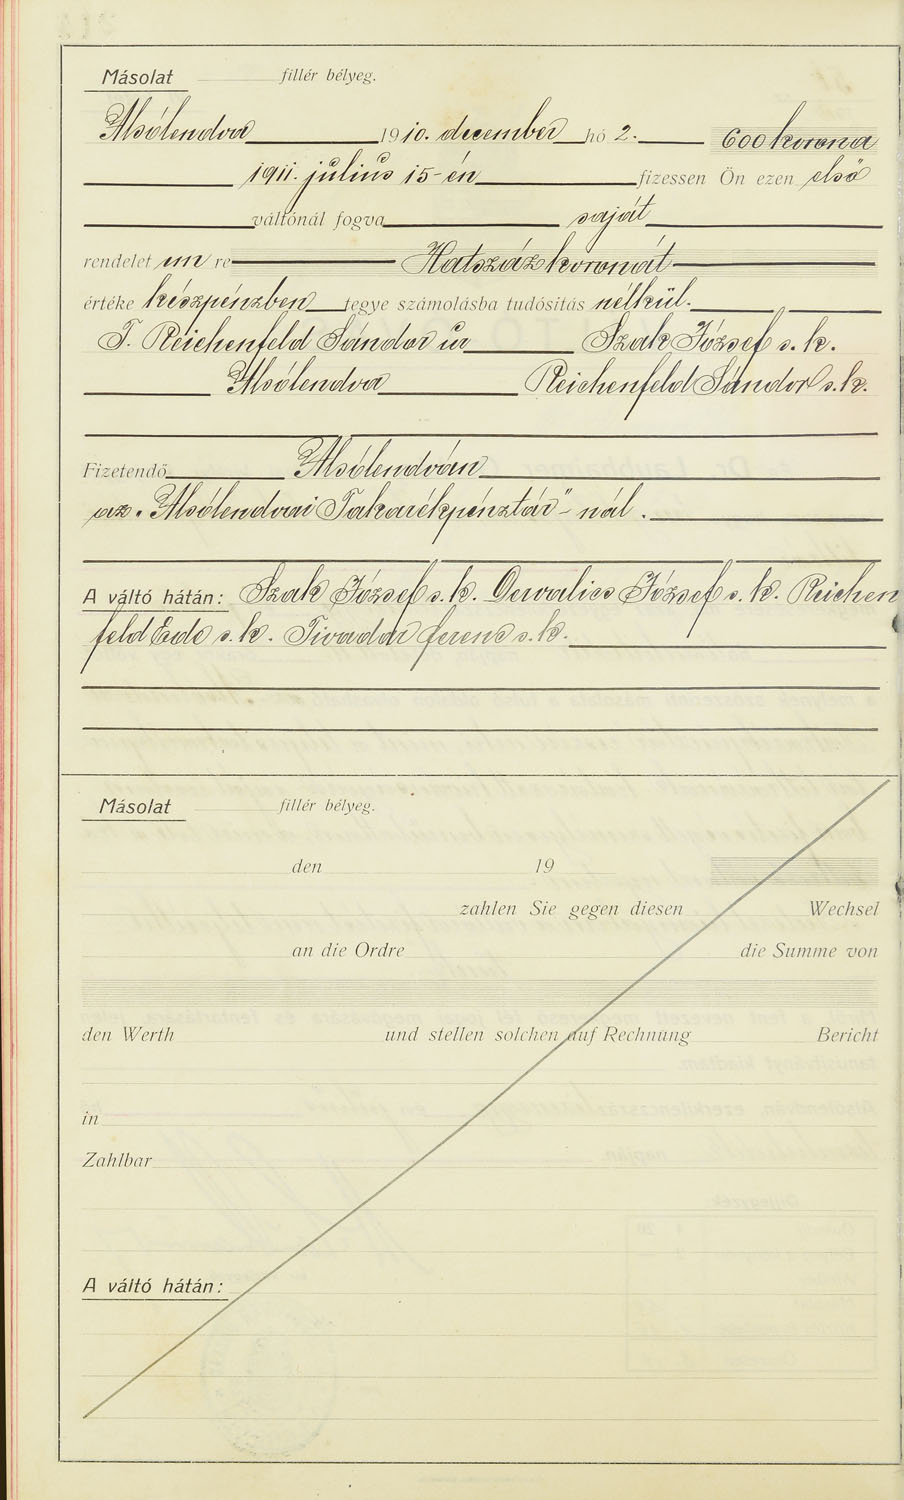 Másolat fillér bélyeg.
Alsólendva 1910. december hó 2. 600 korona
1911. július 15-én fizessen Ön ezen első
váltónál fogva saját
rendelet em re Hatszáz koronát
értéke készpénzben tegye számolásba tudósítás nélkül.
T. Reichenfeld Sándor úr Szak József s. k.
Alsólendva Reichenfeld Sándor s. k.
Fizetendő Alsólendván
az "Alsólendvai Takarékpénztár"-nál.
A váltó hátán: Szak József s. k. Dervalics József s. k. Reichen
feld Ede s. k. Tivadar ferenc s. k.
Másolat fillér bélyeg.
den 19
zahlen Sie gegen diesen Wechsel
an die Ordre die Summe von
den Werth und stellen solchen auf Rechnung Bericht
in
Zahlbar
A váltó hátán: